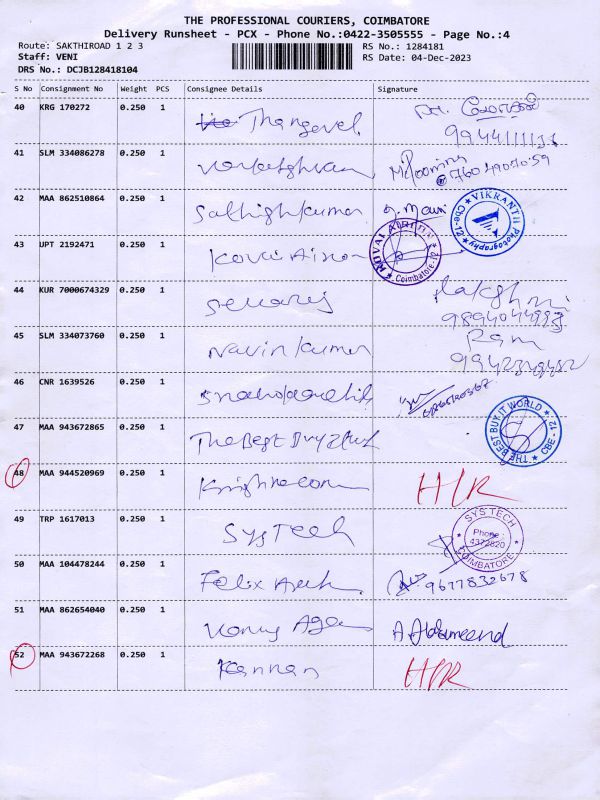 THE PROFESSIONAL COURIERS, COIMBATORE
Delivery Runsheet - PCX - Phone No.:0422-3505555 - Page No.:4
Route: SAKTHIROAD 1 2 3 RS No.: 1284181
Staff: VENI RS Date: 04-Dec-2023
DRS No.: DCJB128418104
S No Consignment No Weight PCS Consignee Details Signature
40 KRG 170272 0.250 1 Thangavel
41 SLM 334086278 0.250 1
42 MAA 862510864 0.250 1 Sathishkumar
VIKRANTH Photography Cbe-12
43 UPT 2192471 0.250 1 Kovai Airion
KOVAI Coimbatore-12
44 KUR 7000674329 0.250 1 Lakshmi
45 SLM 334073760 0.250 1 Navin kumar Ram
46 CNR 1639526 0.250 1
47 MAA 943672865 0.250 1 The Best Buy
THE BEST BUY IT WORLD CBE-12
48 MAA 944520969 0.250 1 HIR
49 TRP 1617013 0.250 1 Sys Tech
SYS TECH
Phone :
4372820
COIMBATORE
50 MAA 104478244 0.250 1 Felix 9677832678
51 MAA 862654040 0.250 1
52 MAA 943672268 0.250 1 Kannan HIR